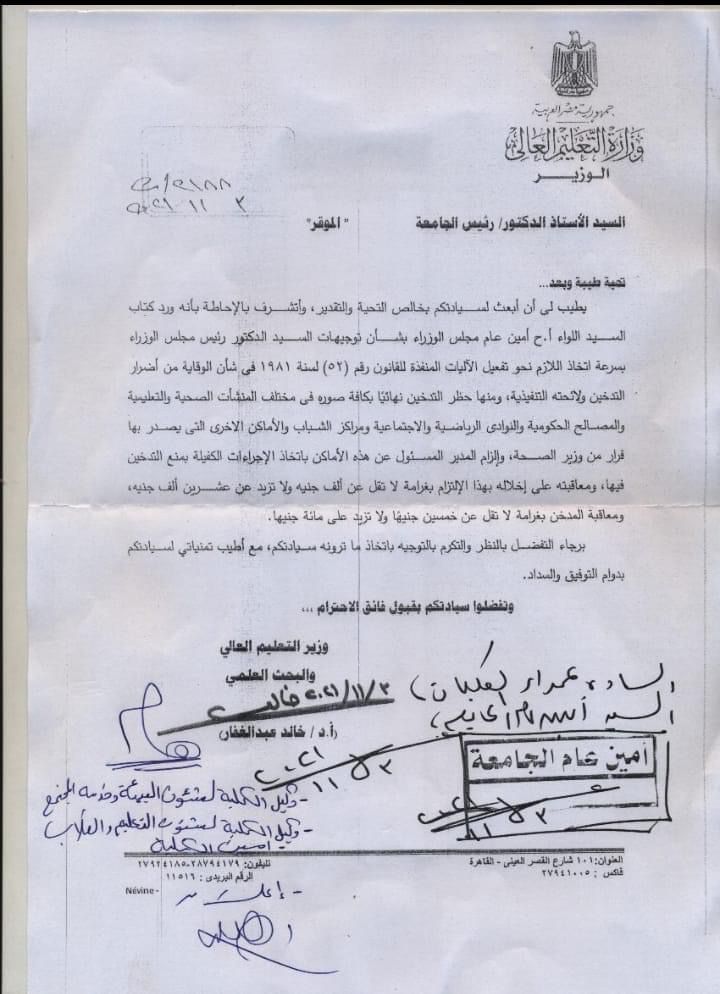 جمهورية مصر العربية
وزارة التعليم العالى
الوزير
السيد الأستاذ الدكتور/ رئيس الجامعة " الموقر"
تحية طيبة وبعد...
يطيب لى أن أبعث لسيادتكم بخالص التحية والتقدير، وأتشرف بالإحاطة بأنه ورد كتاب
السيد اللواء أ.ح أمين عام مجلس الوزراء بشأن توجيهات السيد الدكتور رئيس مجلس الوزراء
بسرعة اتخاذ اللازم نحو تفعيل الآليات المنفذة للقانون رقم (٥٢) لسنة ١٩٨١ فى شأن الوقاية من أضرار
التدخين ولائحته التنفيذية، ومنها حظر التدخين نهائيًا بكافة صوره فى مختلف المنشأت الصحية والتعليمية
والمصالح الحكومية والنوادى الرياضية والاجتماعية ومراكز الشباب والأماكن الاخرى التى يصدر بها
قرار من وزير الصحة، وإلزام المدير المسئول عن هذه الأماكن باتخاذ الإجراءات الكفيلة بمنع التدخين
فيها، ومعاقبته على إخلاله بهذا الإلتزام بغرامة لا تقل عن ألف جنيه ولا تزيد عن عشرين ألف جنيه،
ومعاقبة المدخن بغرامة لا تقل عن خمسين جنيهًا ولا تزيد على مائة جنيها.
برجاء التفضل بالنظر والتكرم بالتوجيه باتخاذ ما ترونه سيادتكم، مع أطيب تمنياتي لسيادتكم
بدوام التوفيق والسداد.
وتفضلوا سيادتكم بقبول فائق الاحترام ،،،
وزير التعليم العالي
والبحث العلمي
٢٠٢١/١١/٣
(أ.د/ خالد عبدالغفار)
السادة عمداء الكليات
السيد
أمين عام الجامعة
- وكيل الكلية لشئون البيئة وخدمة المجتمع
- وكيل الكلية لشئون التعليم والطلاب
أمين الكلية
العنوان: ١٠١ شارع القصر العينى - القاهرة
فاكس : ٢٧٩٤١٠٠٥
تليفون: ٢٨٧٩٤١٧٩-٢٧٩٢٤١٨٥
الرقم البريدى : ١١٥١٦
Névine-